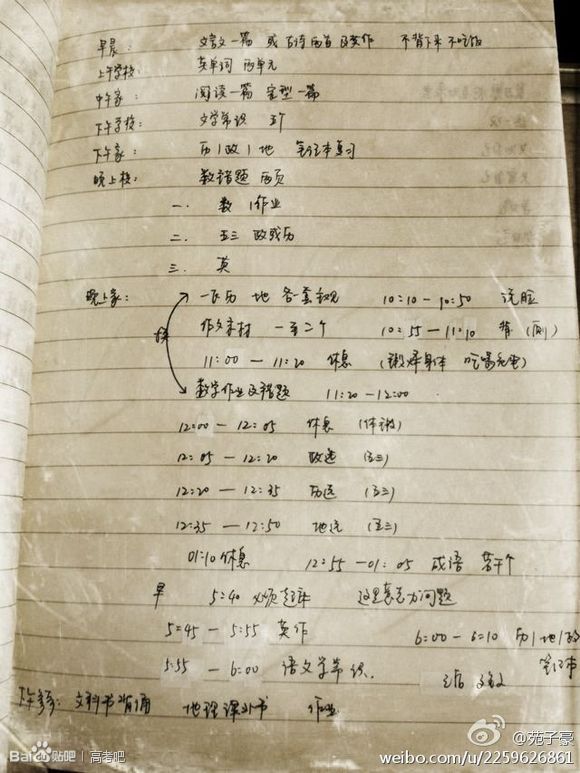 早晨： 文言文一篇 或 古诗两首 及英作 不背下来 不吃饭
上午学校： 英单词 两单元
中午家： 阅读一篇 完型一篇
下午学校： 文学常识 五个
下午家： 历|政|地 笔记本复习
晚上校： 数错题 两页
一、 数 作业
二、 五三 政或历
三、 英
晚上家： 历 地 各一套 10:10—10:50 洗脸
作文素材 一至二个 10:55—11:10 背 (厕)
换
11:00—11:20 休息 (锻炼身体 吃喝)
数学作业及错题 11:20—12:00
12:00—12:05 休息
12:05—12:20 政选 (五三)
12:20—12:35 历选 (五三)
12:35—12:50 地选 (五三)
01:10 休息 12:55—01:05 成语 若干个
早 5:40 必须起床 这是意志力问题
5:45—5:55 英作 6:00—6:10 历|地|政
5:55—6:00 语文学常识 笔记本
文科书背诵 地理课外书 作业
Bai du 贴吧 | 高考吧
@苑子豪
weibo.com/u/2259626861